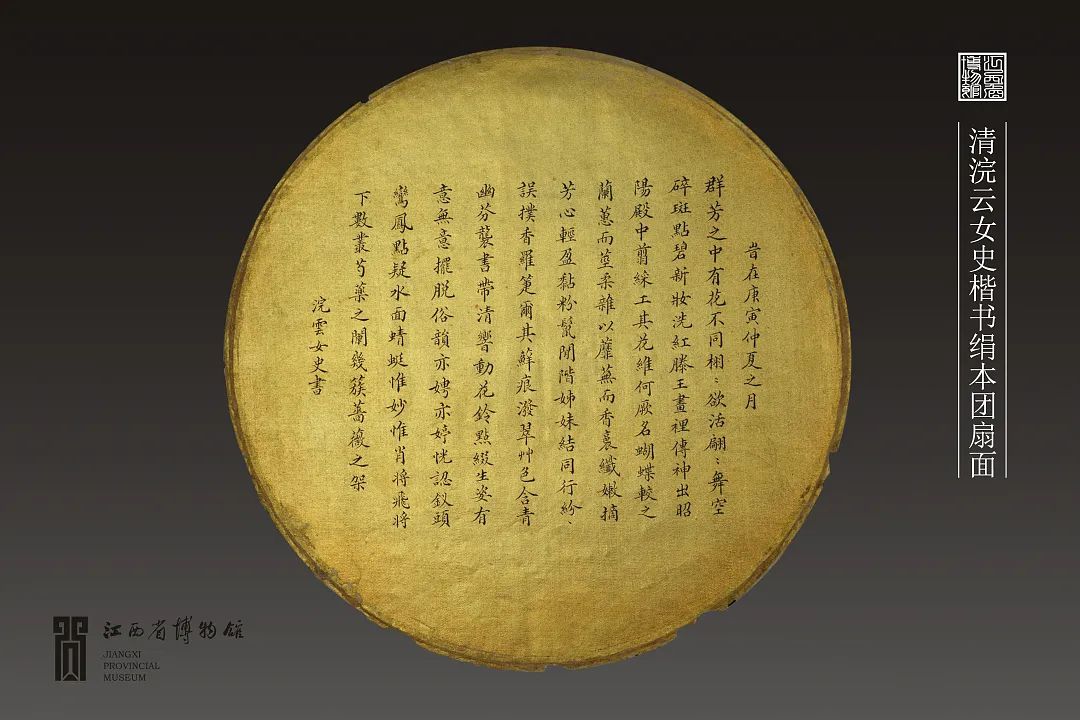 江西省博物館
清浣云女史楷书绢本团扇面
昔在庚寅仲夏之月
群芳之中有花不同栩〻欲活翩〻舞空
碎斑點碧新妝洗紅滕王畫裡傳神出昭
陽殿中翦綵工其花維何厥名蝴蝶較之
蘭蕙而莖柔雜以蘼蕪而香裛纖嫩摘
芳心輕盈黏粉鬣閒階姊妹結同行紛〻
誤撲香羅箑爾其鮮痕潑翠艸色含青
幽芬襲書帶清響動花鈴點綴生姿有
意無意擺脫俗韻亦娉亦婷恍認釵頭
鸞鳳點疑水面蜻蜓惟妙惟肖將飛將
下數叢芍藥之闌幾簇薔薇之架
浣雲女史書
江西省博物館
JIANGXI
PROVINCIAL
MUSEUM